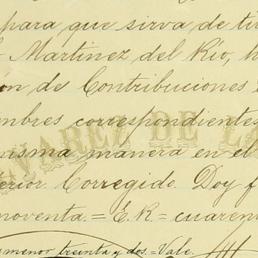 para que sirva de tí
Martinez del Rio, h
ón de Contribuciones
mbres correspondientes
JUAREZ DE LA
misma manera en el
erior Corregido. Doy f
noventa = E. R = cuaren
menor treinta y dos = Vale.